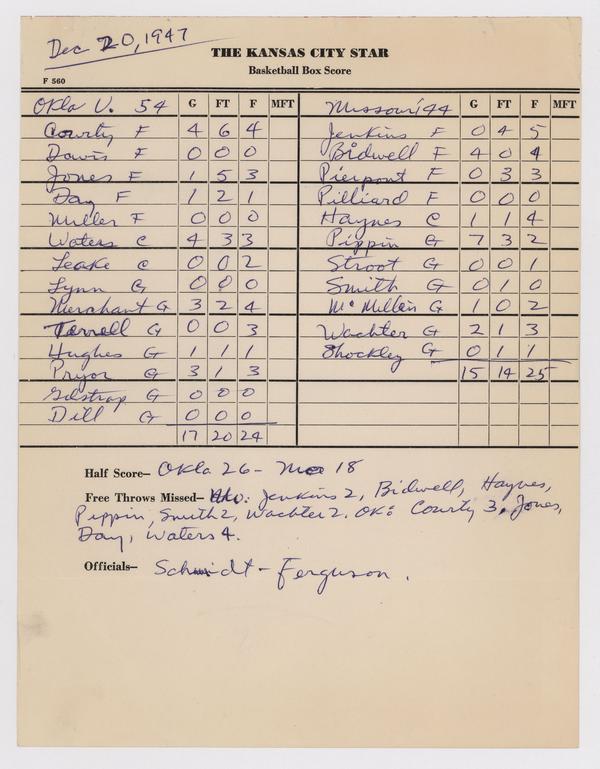 Dec 20, 1947
THE KANSAS CITY STAR
Basketball Box Score
F 560
Okla U. 54 G FT F MFT Missouri 44 G FT F MFT
Courty F 4 6 4 Jenkins F 0 4 5
Davis F 0 0 0 Bidwell F 4 0 4
Jones F 1 5 3 Pierpont F 0 3 3
Day F 1 2 1 Pilliard F 0 0 0
Miller F 0 0 0 Haynes C 1 1 4
Waters C 4 3 3 Pippin G 7 3 2
Leake C 0 0 2 Stroot G 0 0 1
Lynn G 0 0 0 Smith G 0 1 0
Merchant G 3 2 4 McMillen G 1 0 2
Terrell G 0 0 3 Wachter G 2 1 3
Hughes G 1 1 1 Shockley G 0 1 1
Pryor G 3 1 3 15 14 25
Gilstrap G 0 0 0
Dill G 0 0 0
17 20 24
Half Score— Okla 26 - Mo 18
Free Throws Missed— Mo: Jenkins 2, Bidwell, Haynes,
Pippin, Smith 2, Wachter 2. OK: Courty 3, Jones,
Day, Waters 4.
Officials— Schmidt - Ferguson.